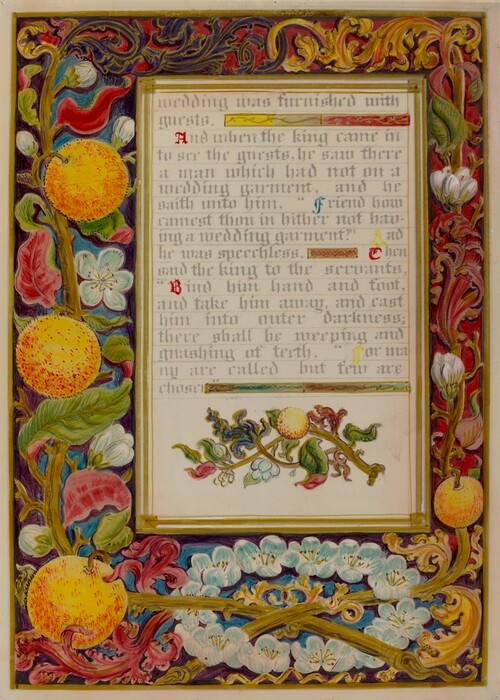 wedding was furnished with
guests.
And when the king came in
to see the guests, he saw there
a man which had not on a
wedding garment, and he
saith unto him, "Friend how
camest thou in hither not hav-
ing a wedding garment?" And
he was speechless. Then
said the king to the servants,
"Bind him hand and foot,
and take him away, and cast
him into outer darkness;
there shall be weeping and
gnashing of teeth. "For ma
ny are called but few are
chosen"